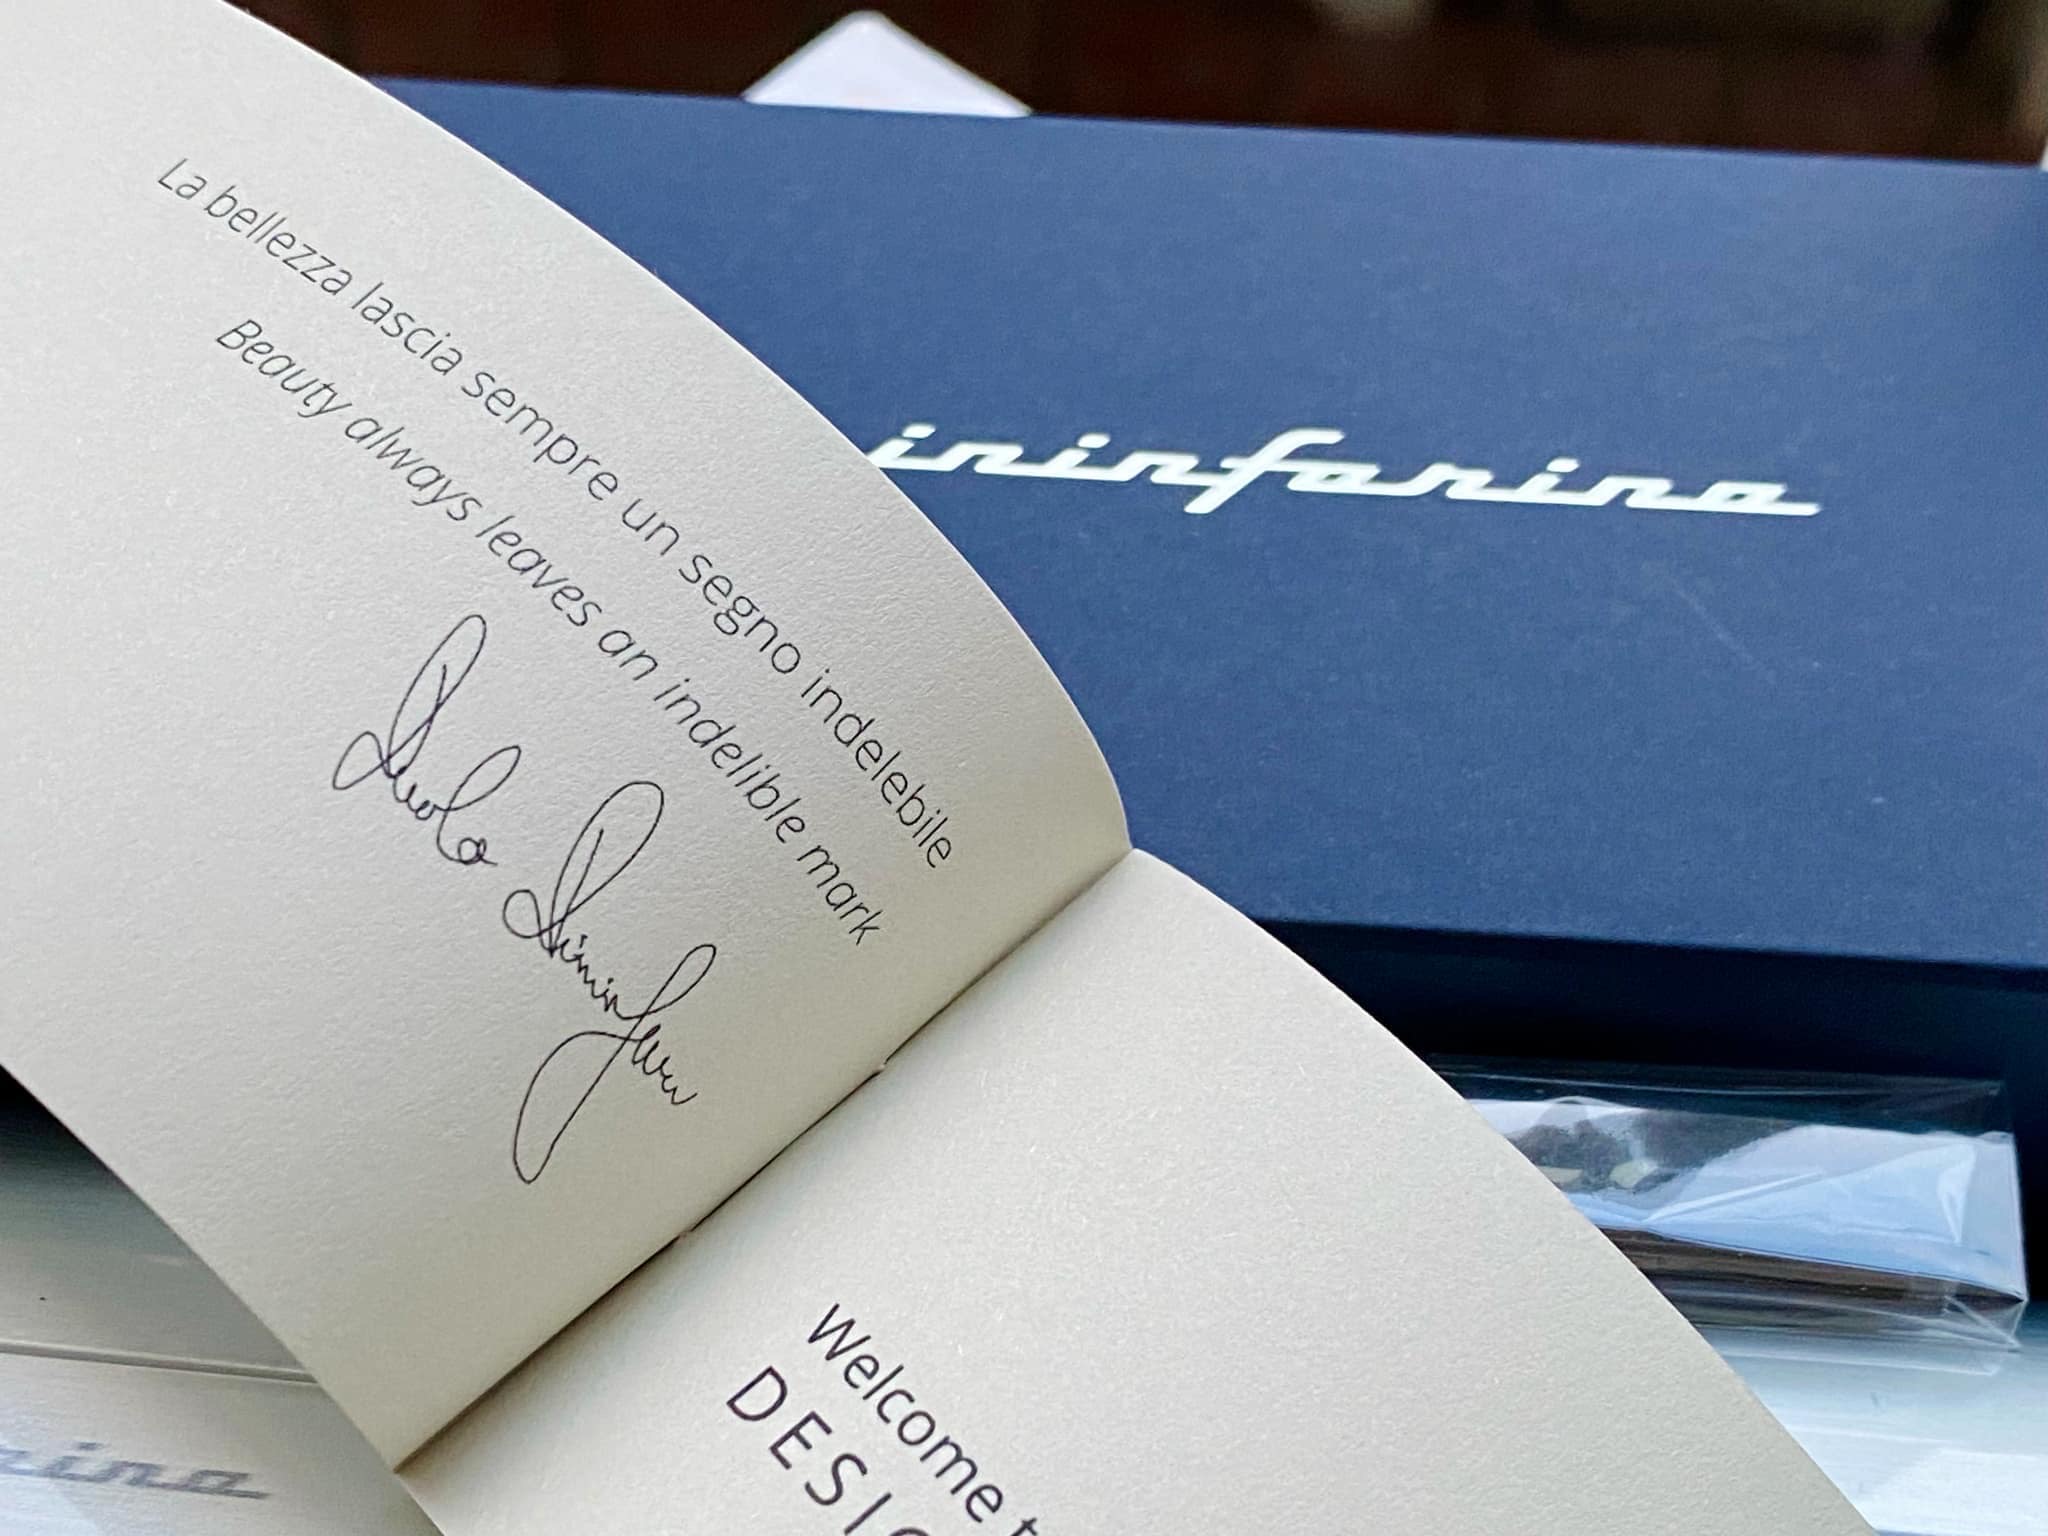 La bellezza lascia sempre un segno indelebile
Beauty always leaves an indelible mark
Paolo Pininfarina
ininfarina
Welcome t
DESIG
rina